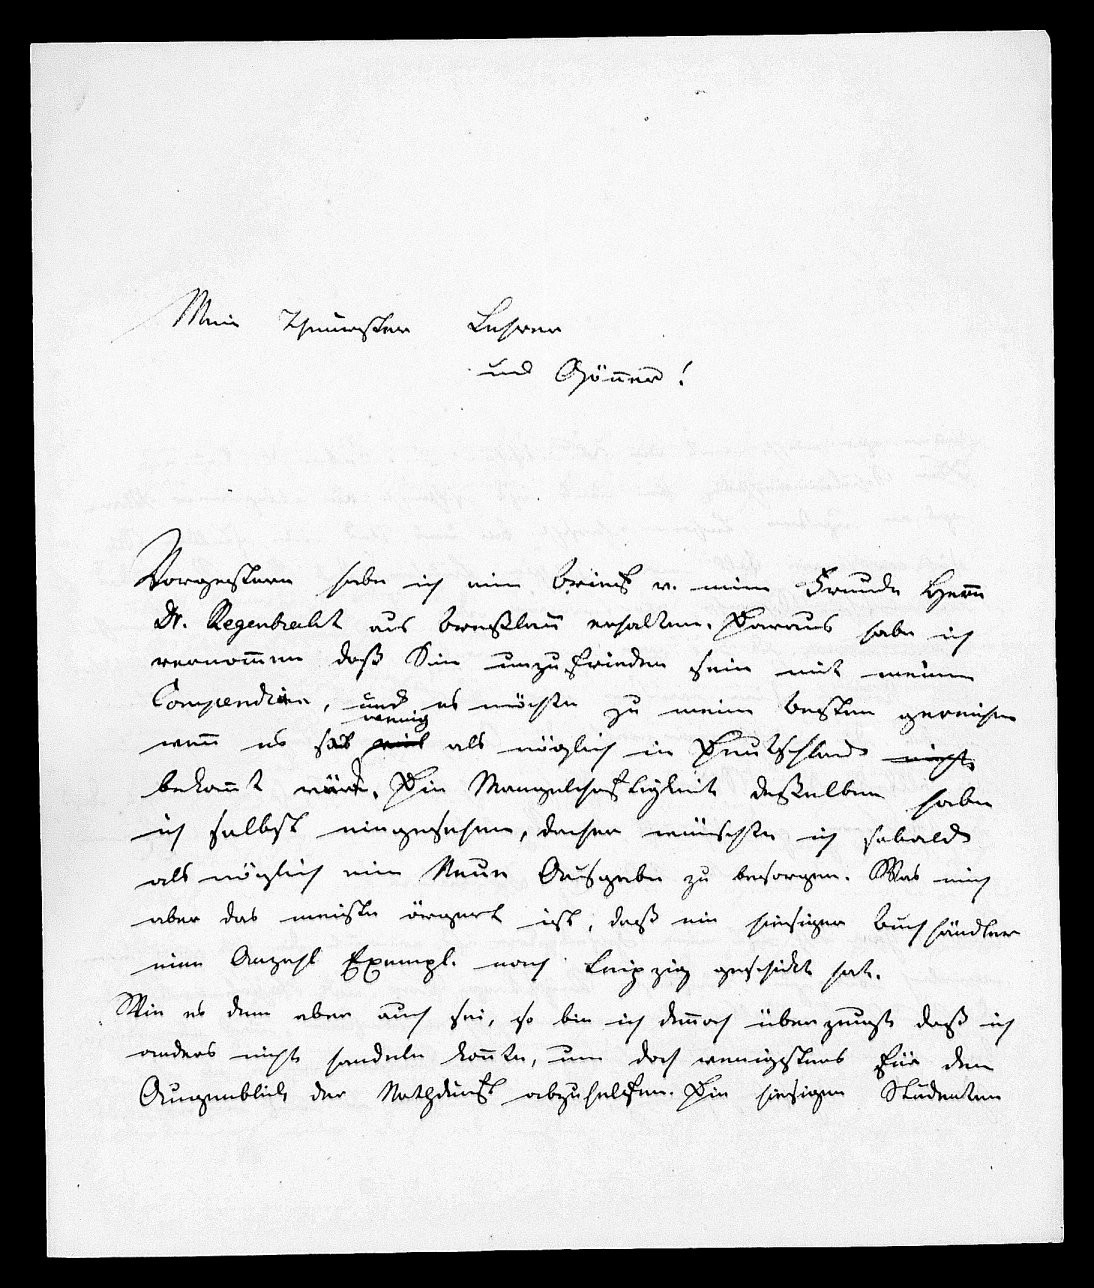 Mein Theuerster Lehrer
und Gönner!
Vorgestern habe ich ein Brief v. mein Freunde Herrn
Dr. Regenbrecht aus Breßlau erhalten. Daraus habe ich
vernommen daß Sie unzufrieden sein mit meinem
Compendien, und es möchte zu meim besten gereichen
wenn es so wenig als möglich in Deutschland
bekannt würd. Die Mangelhaftigkeit desselben habe
ich selbst eingesehen, daher wünschte ich sobald
als möglich eine Neue Ausgabe zu besorgen. Was mich
aber das meiste ärgert ist, daß ein hiesiger Buchhändler
eine Anzahl Exempl. nach Leipzig geschickt hat.
Wie es dem aber auch sei, so bin ich dennoch überzeugt daß ich
anders nicht handeln konnte, um doch wenigstens für den
Augenblick der Nothdurft abzuhelfen. Die hiesigen Studenten